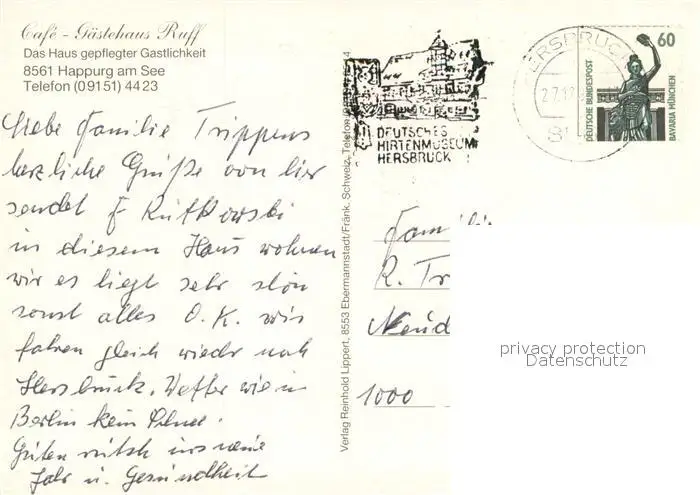 Café - Gästehaus Ruff
Das Haus gepflegter Gastlichkeit
8561 Happurg am See
Telefon (09151) 4423
Liebe Familie Trippens
herzliche Grüße von hier
sendet F Rutkowski
in diesem Haus wohnen
wir es liegt sehr schön
sonst alles O.K. wir
fahren gleich wieder nach
Hersbruck. Wetter wie in
Berlin kein Schnee.
Guten rutsch ins neue
Jahr u. Gesundheit
Verlag Reinhold Lippert, 8553 Ebermannstadt/Fränk. Schweiz, Telefon
DEUTSCHES
HIRTENMUSEUM
HERSBRUCK
HERSBRUCK
60
DEUTSCHE BUNDESPOST
BAVARIA MÜNCHEN
Fam
R. Tr
1000
privacy protection
Datenschutz